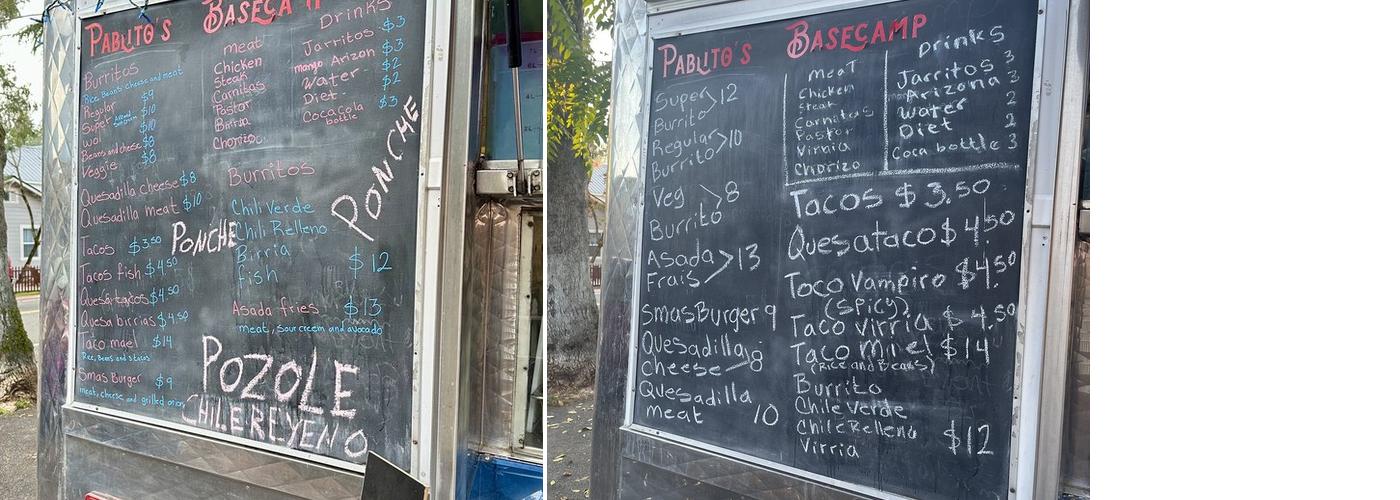 PABLITO'S BASECAMP
Burritos
Rice, Beans, cheese and meat
Regular $9
Super $10
wol $10
Beans and cheese $8
Veggie $8
Quesadilla cheese $8
Quesadilla meat $10
Tacos $3.50
Tacos fish $4.50
Quesatacos $4.50
Quesa birrias $4.50
Taco miel $14
Rice, Beans and 3 tacos
Smas Burger $9
meat, cheese and grilled onion
meat
Chicken
Steak
Carnitas
Pastor
Birria
Chorizo
Drinks
Jarritos $3
mango Arizon $3
Water $2
Diet $2
Coca cola $3
bottle
PONCHE
Burritos
Chili Verde
Chili Relleno
Birria
fish $12
PONCHE
Asada fries $13
meat, sour creem and avocado
POZOLE
CHILEREYENO
PABLITO'S BASECAMP
Super Burrito >12
Regular Burrito >10
Veg Burrito >8
Asada Frais >13
SmasBurger 9
Quesadilla cheese >8
Quesadilla
meat 10
meat
Chicken
Steak
Carnitas
Pastor
Virria
Chorizo
Drinks
Jarritos 3
Arizona 3
Water 2
Diet 2
Coca bottle 3
Tacos $3.50
Quesataco $4.50
Toco Vampiro $4.50
(SPICY)
Taco virria $4.50
Taco Miel $14
(Rice and Beans)
Burrito
Chile Verde
Chile Relleno $12
Virria